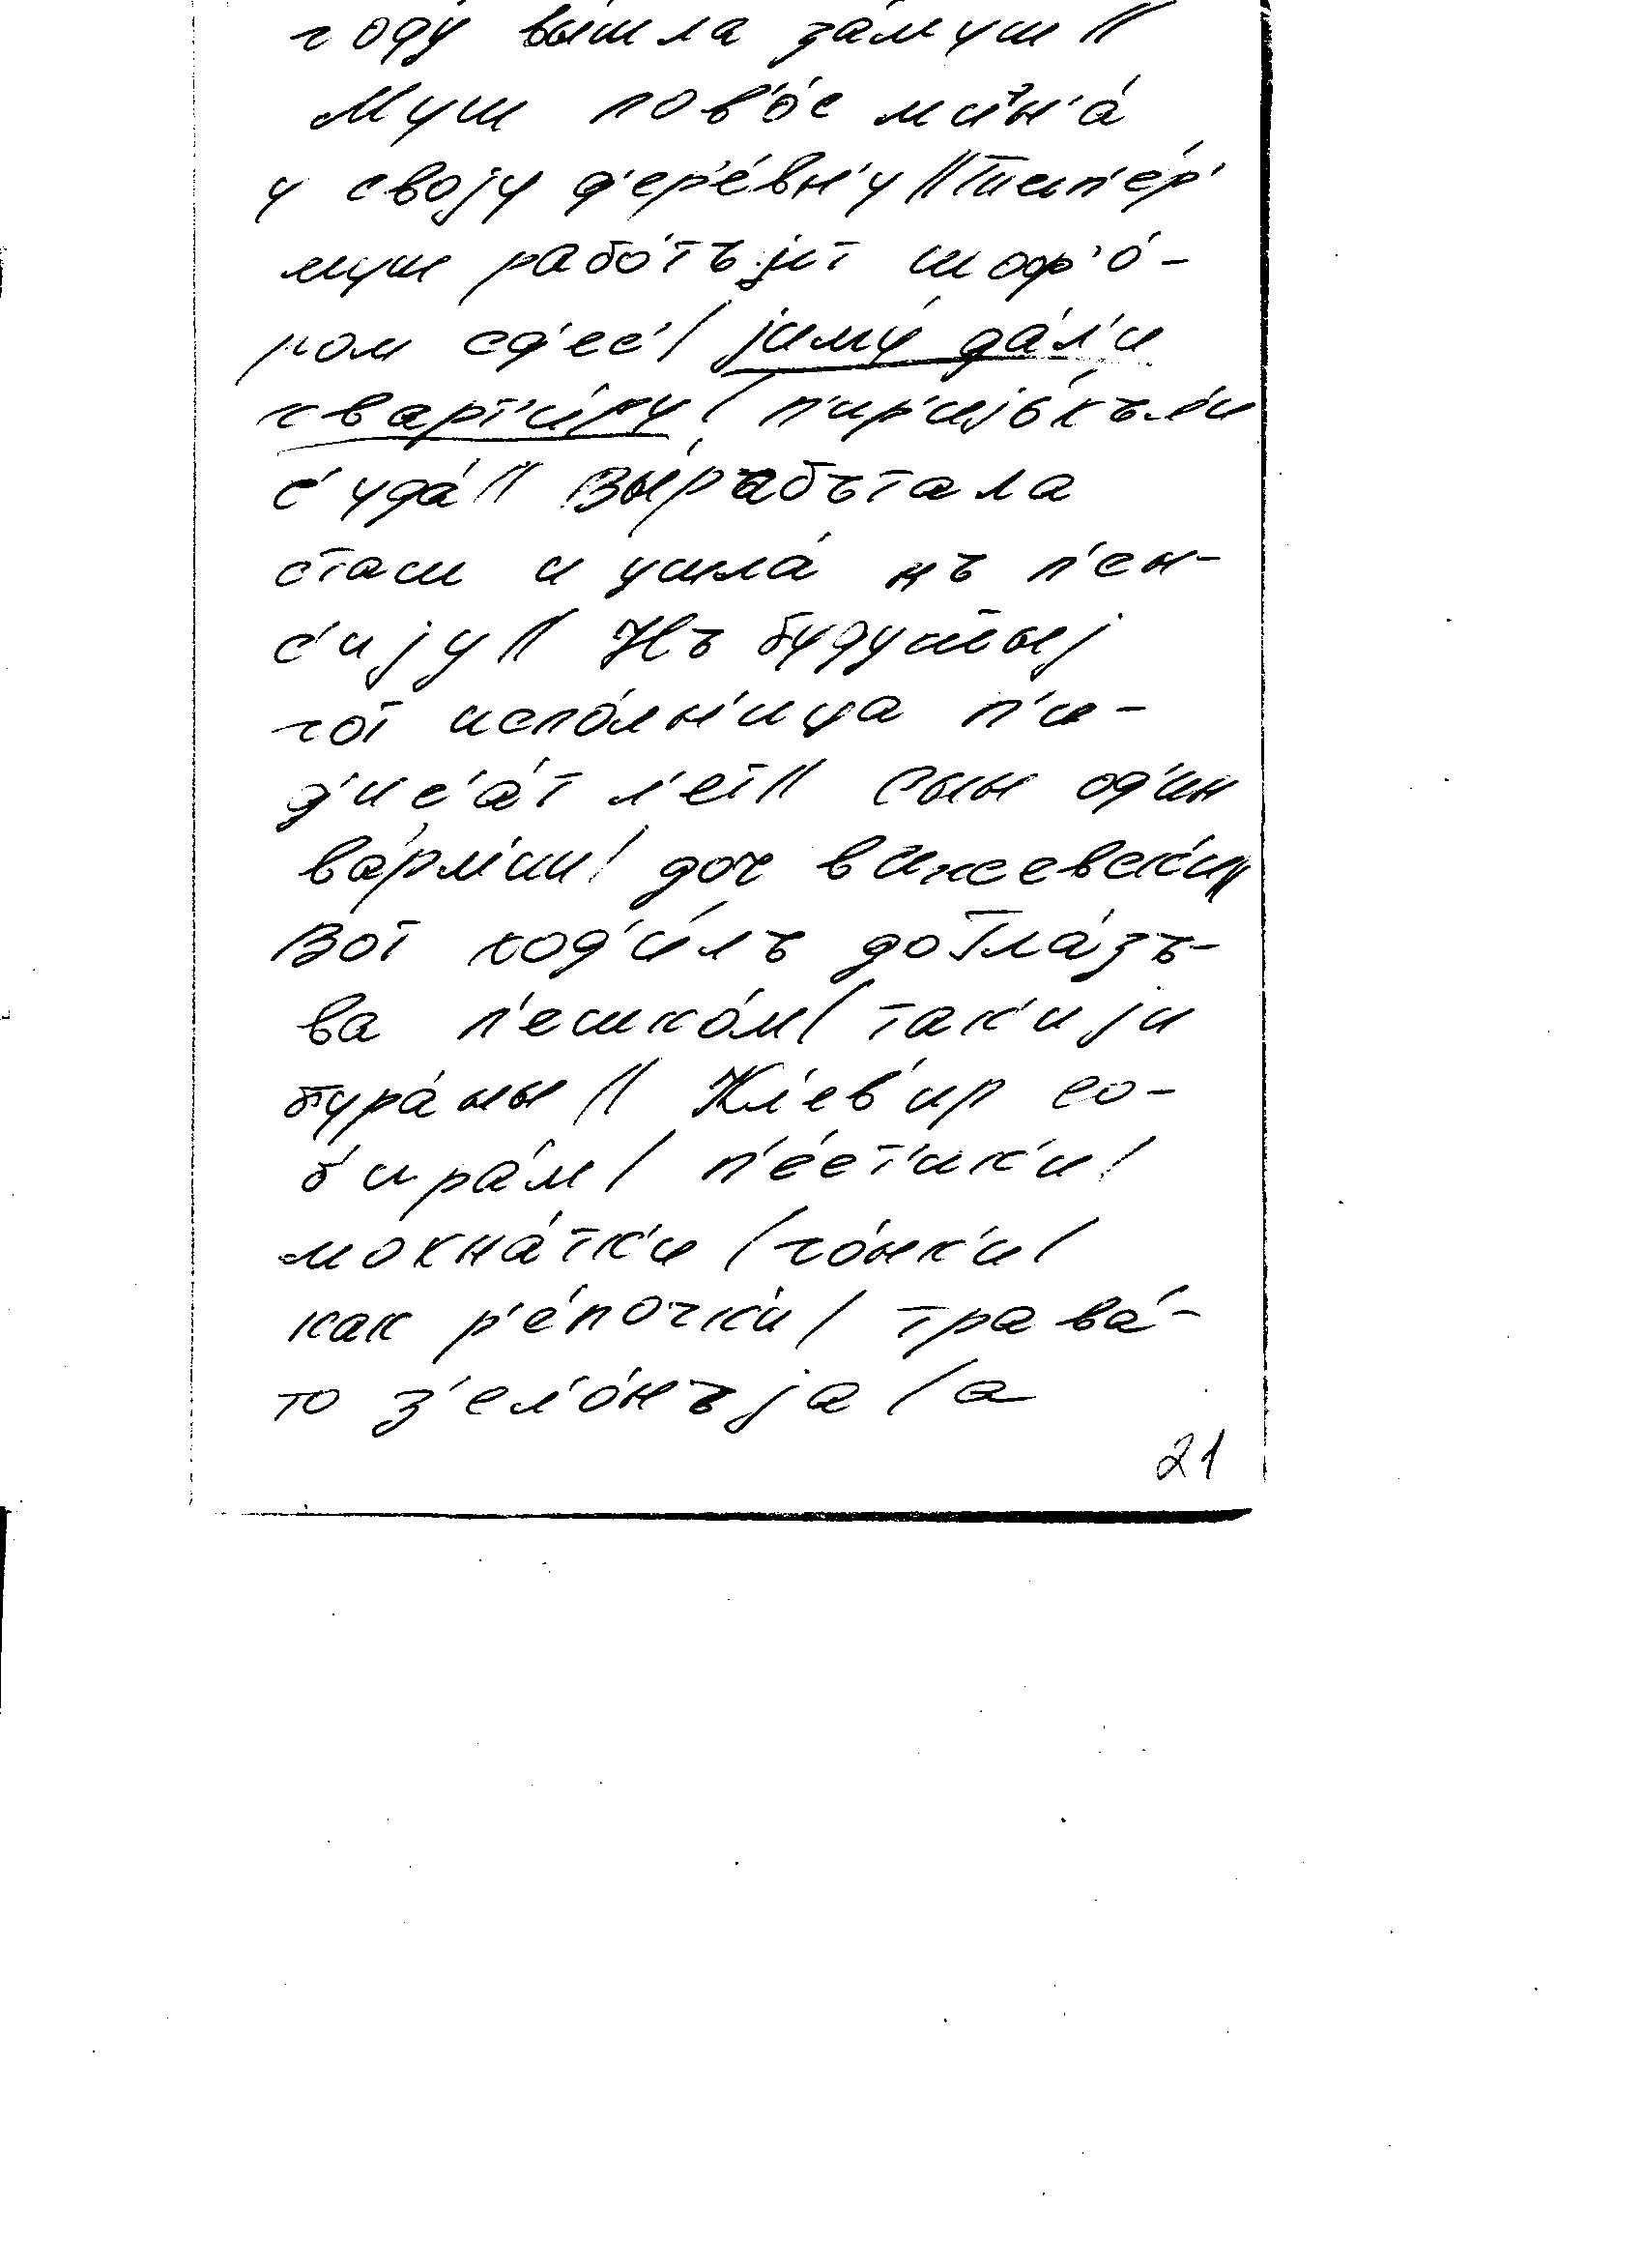 году́ вы́шла за́муш //
Муш пов'о́с мин'а́
у своју д'ер'е́вн'у // Тип'е́р'
муш рабо́тъјит шоф'о́-
ром сд'ес' / јиму́ да́л'и
кварт'и́ру / п'ир'ијо́хъл'и
с'уда́ // Вы́ръбътала
сташ и ушла́ нъ п'ен-
с'ију // Нъ будушыј
гот испо́лн'ица п'и-
д'ис'а́т л'ет // Сын од'ин
ва́рм'ии / доч в ижевск'и //
Вот ход'и́лъ до Гла́зъ-
ва п'ешко́м / так'ији
бура́ны // Кл'ев'ир со-
б'ира́м / п'е́ст'ик'и /
мохна́тк'и / то́нк'и /
как р'е́почк'и / трава́-
то з'ел'о́нъја / а
21